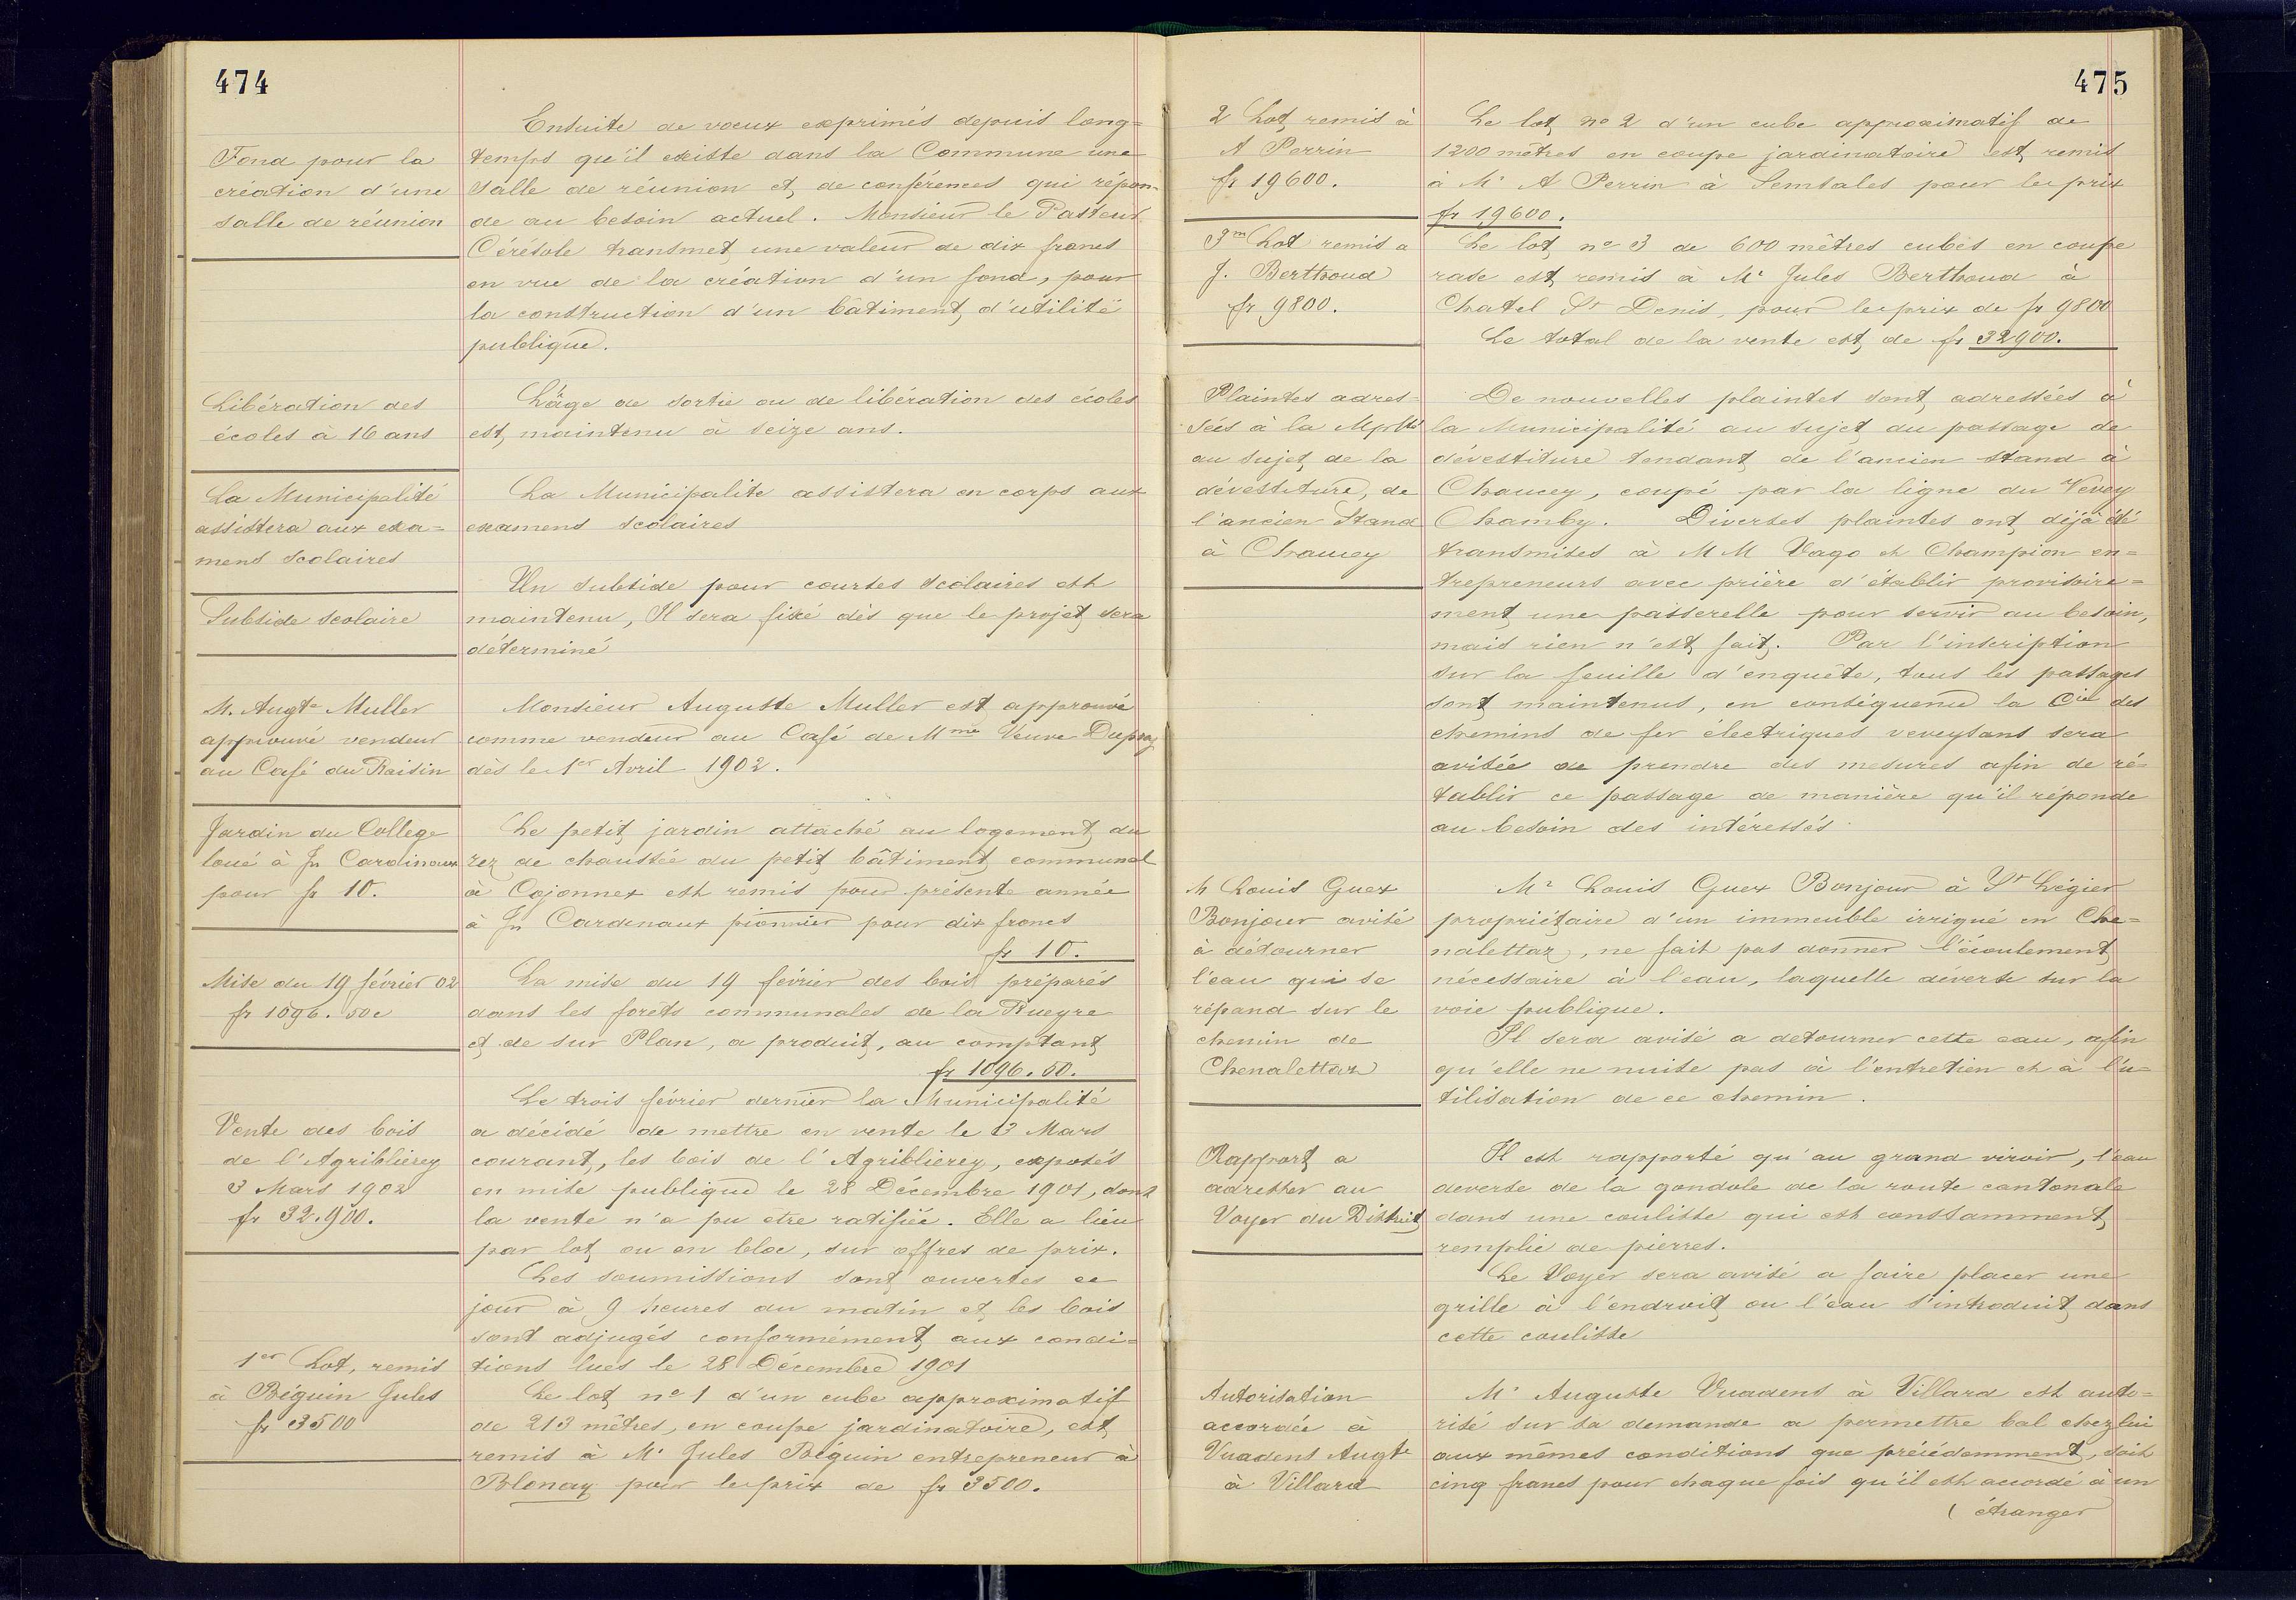 474
Fond pour la
création d'une
salle de réunion
Ensuite de voeux exprimés depuis long=
temps qu'il existe dans la Commune une
salle de réunion et de conférences qui répon-
de au besoin actuel. Monsieur le Pasteur
Cérésole transmet une valeur de dix francs
en vue de la création d'un fond, pour
la construction d'un bâtiment d'utilité
publique.
Libération des
écoles à 16 ans
L'âge de sortie ou de libération des écoles
est maintenu à seize ans.
La Municipalité
assistera aux exa=
mens scolaires
La Municipalite assistera en corps aux
examens scolaires
Subside scolaire
Un subside pour courses scolaires est
maintenu, Il sera fixé dès que le projet sera
déterminé
M. Augte Muller
approuvé vendeur
au Café du Raisin
Monsieur Auguste Muller est approuvé
comme vendeur au Café de Mme Veuve Dupraz
dès le 1er Avril 1902.
Jardin du College
loué à Fs Cardinaux
pour fr 10.
Le petit jardin attaché au logement du
rez de chaussée du petit bâtiment communal
à Cojonnex est remis pour présente année
à Fs Cardinaux pionnier pour dix francs
fr 10.
Mise du 19 février 02
fr 1096.50c
La mise du 19 février des bois préparés
dans les forêts communales de la Rueyre
et de sur Plan, a produit, au comptant
fr 1096.50.
Vente des bois
de l'Agriblierey
3 Mars 1902
fr 32.900.
Le trois février dernier la Municipalité
a décidé de mettre en vente le 3 Mars
courant, les bois de l'Agriblierey, exposés
en mise publique le 28 Décembre 1901, dont
la vente n'a pu être ratifiée. Elle a lieu
par lot ou en bloc, sur offres de prix.
Les soumissions sont ouvertes ce
jour à 9 heures du matin et les bois
sont adjugés conformément aux condi=
tions lues le 28 Décembre 1901
1er Lot, remis
à Béguin Jules
fr 3500
Le lot no 1 d'un cube approximatif
de 213 mètres, en coupe jardinatoire, est
remis à Mr Jules Béguin entrepreneur à
Blonay pour le prix de fr 3500.
475
2 Lot remis à
A Perrin
fr 19600.
Le lot no 2 d'un cube approximatif de
1200 mètres en coupe jardinatoire est remis
à Mr A Perrin à Semsales pour le prix
fr 19600.
3m Lot remis a
J. Berthoud
fr 9800.
Le lot no 3 de 600 mètres cubes en coupe
rase est remis à Mr Jules Berthoud à
Chatel St Denis, pour le prix de fr 9800
Le total de la vente est de fr 32900.
Plaintes adres=
sées à la Mplté
au sujet de la
dévestiture, de
l'ancien Stand
à Chaucey
De nouvelles plaintes sont adressées à
la Municipalité au sujet du passage de
dévestiture tendant de l'ancien stand à
Chaucey, coupé par la ligne du Vevey
Chamby. Diverses plaintes ont déjà été
transmises à MM Vago et Champion en=
trepreneurs avec prière d'établir provisoire=
ment une passerelle pour servir au besoin,
mais rien n'est fait. Par l'inscription
sur la feuille d'enquête, tous les passages
sont maintenus, en conséquence la Cie des
chemins de fer électriques veveysans sera
avisée de prendre des mesures afin de ré=
tablir ce passage de manière qu'il réponde
au besoin des intéressés.
M Louis Guex
Bonjour avisé
à détourner
l'eau qui se
répand sur le
chemin de
Chenalettaz
Mr Louis Guex Bonjour à St Légier
propriétaire d'un immeuble irrigué en Che=
nalettaz, ne fait pas donner l'écoulement
nécessaire à l'eau, laquelle déverse sur la
voie publique.
Il sera avisé a detourner cette eau, afin
qu'elle ne nuise pas à l'entretien et à l'u=
tilisation de ce chemin.
Rapport a
adresser au
Voyer du District
Il est rapporté qu'au grand viroir, l'eau
deverse de la gondole de la route cantonale
dans une coulisse qui est constamment
remplie de pierres.
Le Voyer sera avisé a faire placer une
grille à l'endroit ou l'eau s'introduit dans
cette coulisse
Autorisation
accordée à
Vuadens Augte
à Villard
Mr Auguste Vuadens à Villard est auto=
risé sur sa demande a permettre bal chez lui
aux mêmes conditions que précédemment, soit
cinq francs pour chaque fois qu'il est accordé à un
( étranger